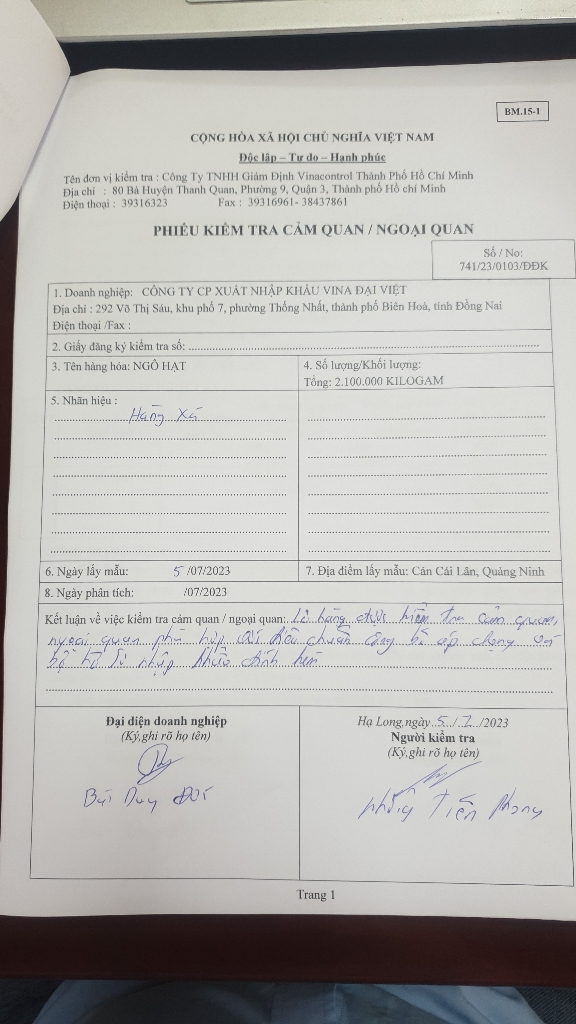 BM.15-1
CỘNG HÒA XÃ HỘI CHỦ NGHĨA VIỆT NAM
Độc lập – Tự do – Hạnh phúc
Tên đơn vị kiểm tra : Công Ty TNHH Giám Định Vinacontrol Thành Phố Hồ Chí Minh
Địa chỉ : 80 Bà Huyện Thanh Quan, Phường 9, Quận 3, Thành phố Hồ chí Minh
Điện thoại : 39316323 Fax : 39316961- 38437861
PHIẾU KIỂM TRA CẢM QUAN / NGOẠI QUAN
Số / No:
741/23/0103/ĐĐK
1. Doanh nghiệp: CÔNG TY CP XUẤT NHẬP KHẨU VINA ĐẠI VIỆT
Địa chỉ : 292 Võ Thị Sáu, khu phố 7, phường Thống Nhất, thành phố Biên Hoà, tỉnh Đồng Nai
Điện thoại /Fax :
2. Giấy đăng ký kiểm tra số:
3. Tên hàng hóa: NGÔ HẠT
4. Số lượng/Khối lượng:
Tổng: 2.100.000 KILOGAM
5. Nhãn hiệu :
Hàng xá
6. Ngày lấy mẫu: 5 /07/2023
7. Địa điểm lấy mẫu: Cản Cái Lân, Quảng Ninh
8. Ngày phân tích: /07/2023
Kết luận về việc kiểm tra cảm quan / ngoại quan: Lô hàng được kiểm tra cảm quan,
ngoại quan phù hợp với tiêu chuẩn công bố áp dụng và
bộ hồ sơ nhập khẩu đính kèm
Đại diện doanh nghiệp
(Ký,ghi rõ họ tên)
Bùi Duy
Hạ Long,ngày 5 / 7 /2023
Người kiểm tra
(Ký,ghi rõ họ tên)
Tiến Phong
Trang 1